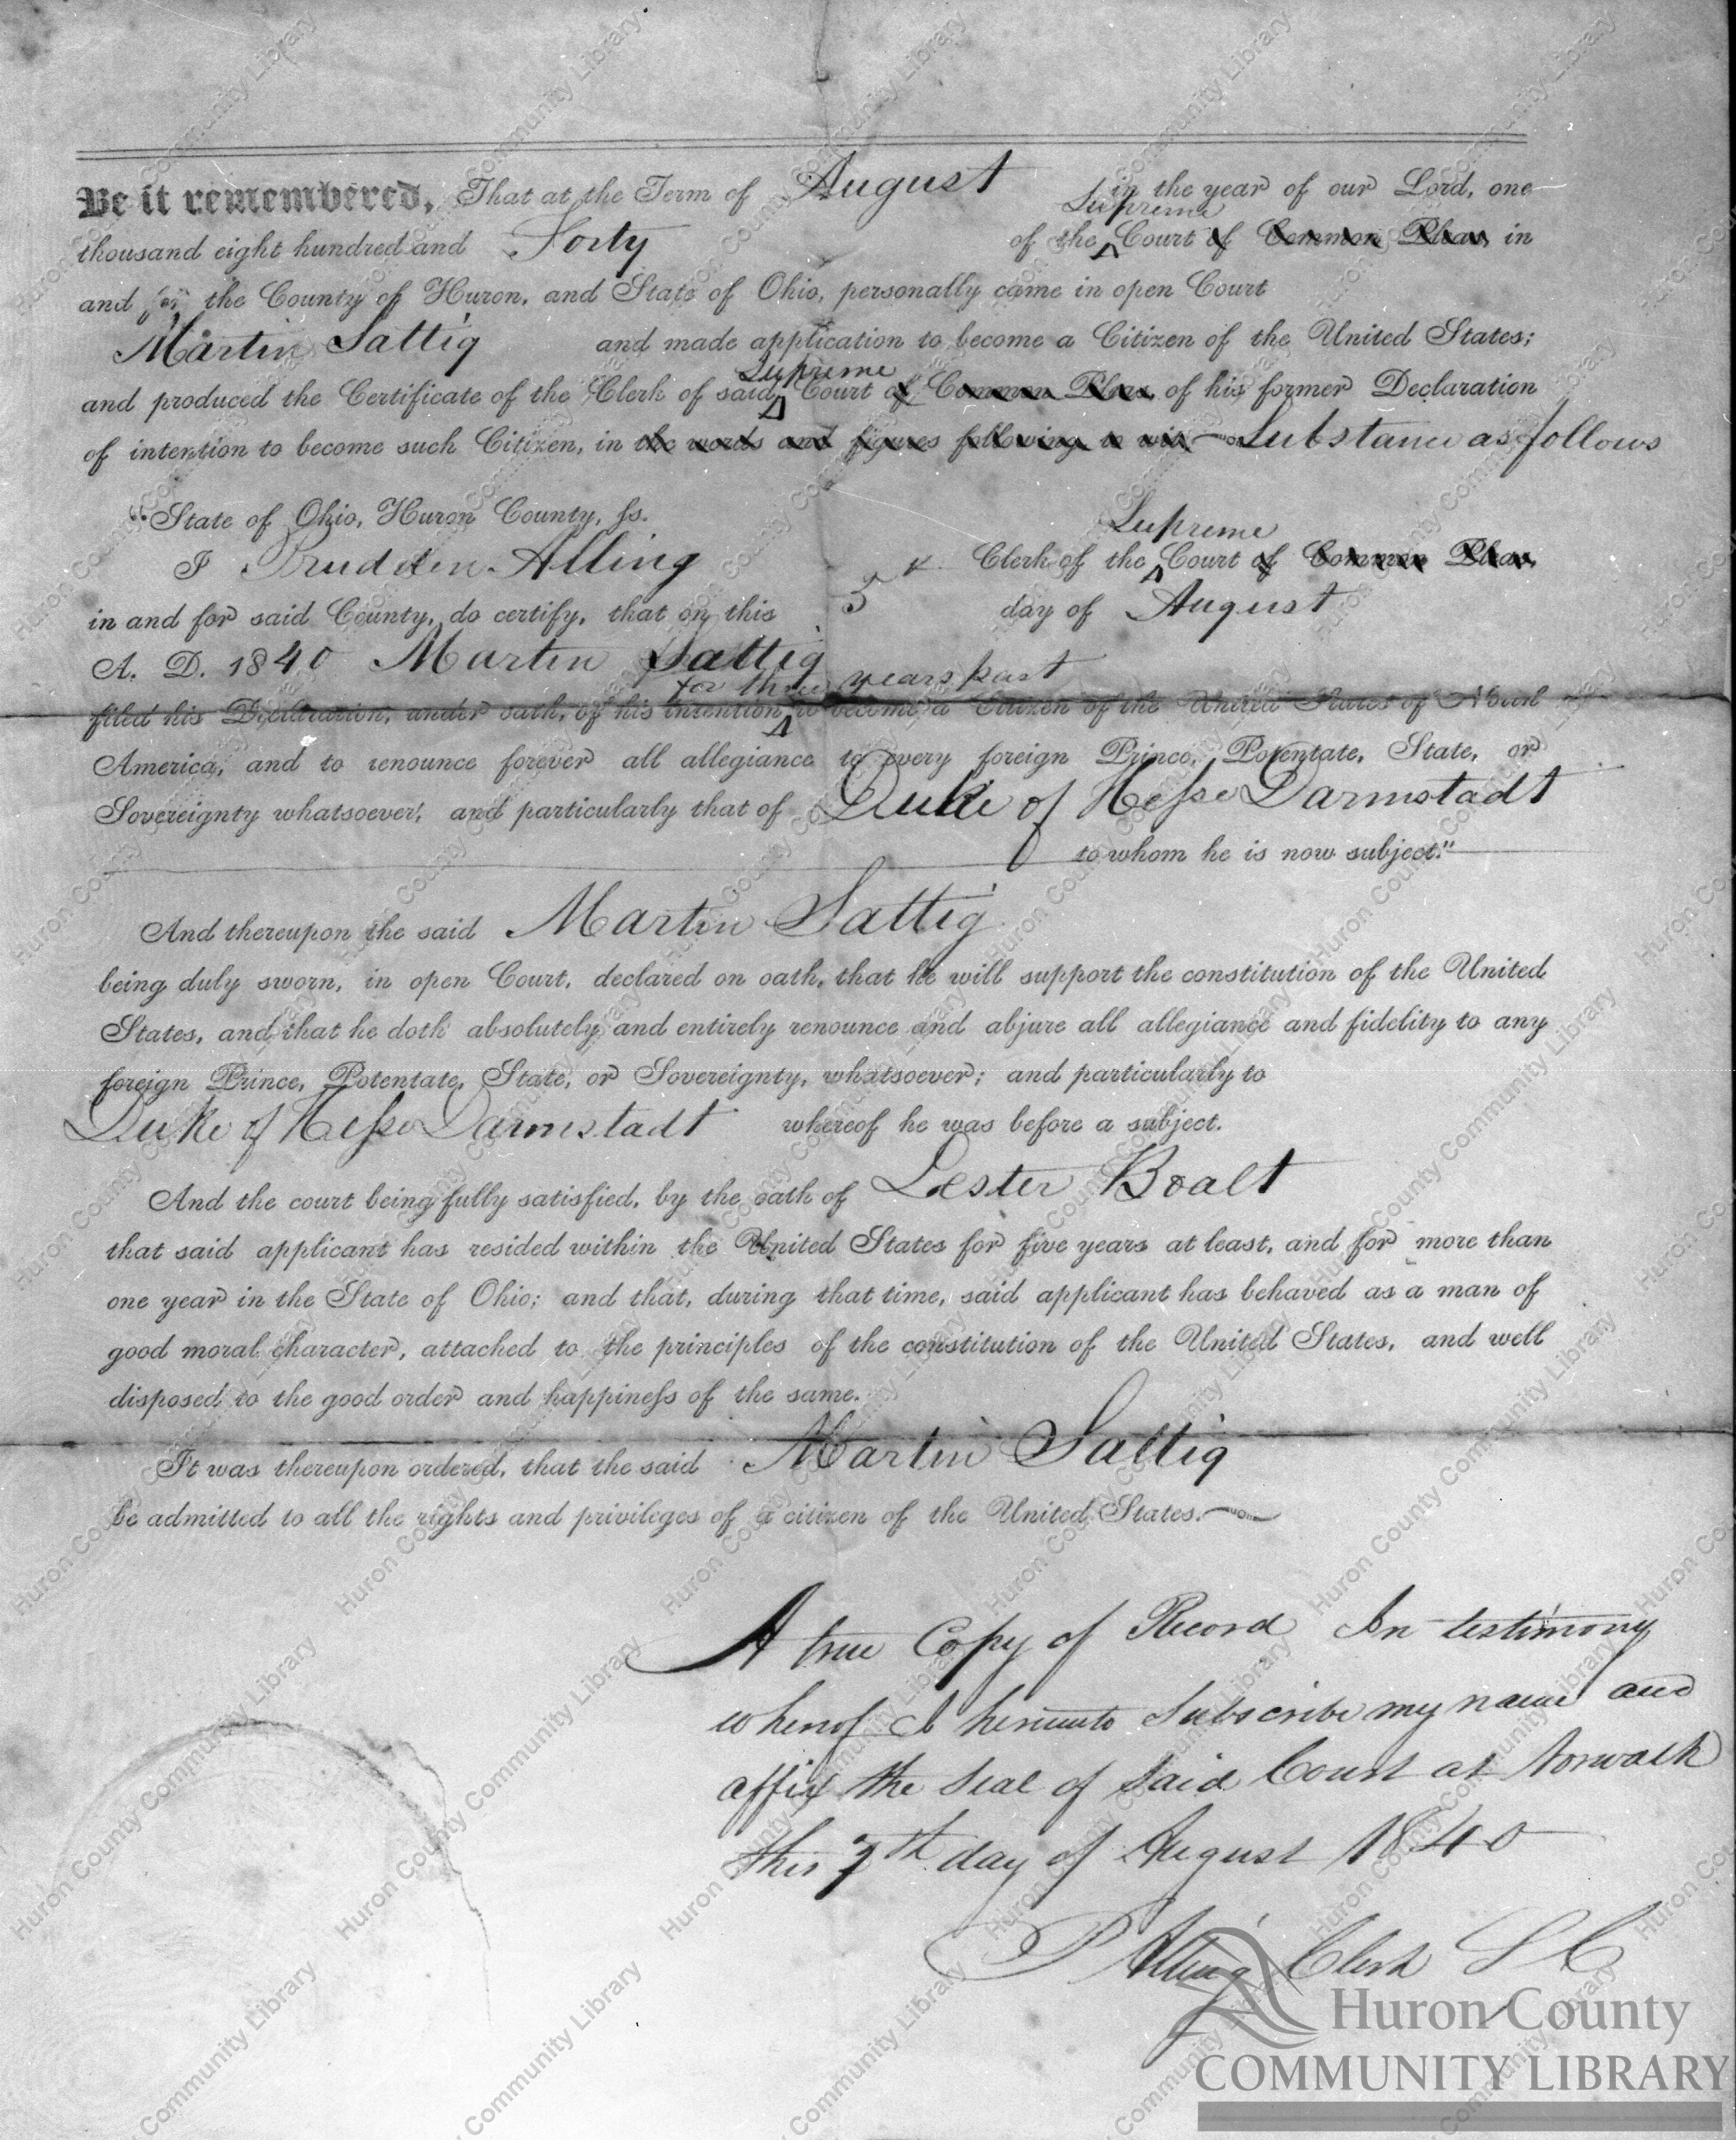 Be it remembered, That at the Term of August in the year of our Lord, one
Supreme
thousand eight hundred and Forty of the Court of Common Pleas, in
and for the County of Huron, and State of Ohio, personally came in open Court
Martin Sattig and made application to become a Citizen of the United States;
Supreme
and produced the Certificate of the Clerk of said Court of Common Pleas, of his former Declaration
of intention to become such Citizen, in the words and figures following to wit Substance as follows
"State of Ohio, Huron County, ss.
Supreme
I Prudden Alling Clerk of the Court of Common Pleas,
in and for said County, do certify, that on this 5 day of August
A. D. 1840 Martin Sattig
for three years past
filed his Declaration, under oath, of his intention to become a Citizen of the United States of North
America, and to renounce forever all allegiance to every foreign Prince, Potentate, State, or
Sovereignty whatsoever, and particularly that of Duke of Hesse Darmstadt
to whom he is now subject."
And thereupon the said Martin Sattig
being duly sworn, in open Court, declared on oath, that he will support the constitution of the United
States, and that he doth absolutely and entirely renounce and abjure all allegiance and fidelity to any
foreign Prince, Potentate, State, or Sovereignty, whatsoever; and particularly to
Duke of Hesse Darmstadt whereof he was before a subject.
And the court being fully satisfied, by the oath of Lester Boalt
that said applicant has resided within the United States for five years at least, and for more than
one year in the State of Ohio; and that, during that time, said applicant has behaved as a man of
good moral character, attached to the principles of the constitution of the United States, and well
disposed to the good order and happiness of the same.
It was thereupon ordered, that the said Martin Sattig
be admitted to all the rights and privileges of a citizen of the United States.
A true Copy of Record In testimony
whereof I hereunto Subscribe my name and
affix the Seal of Said Court at Norwalk
this 7th day of August 1840
P Alling Clerk S C
Huron County
COMMUNITY LIBRARY